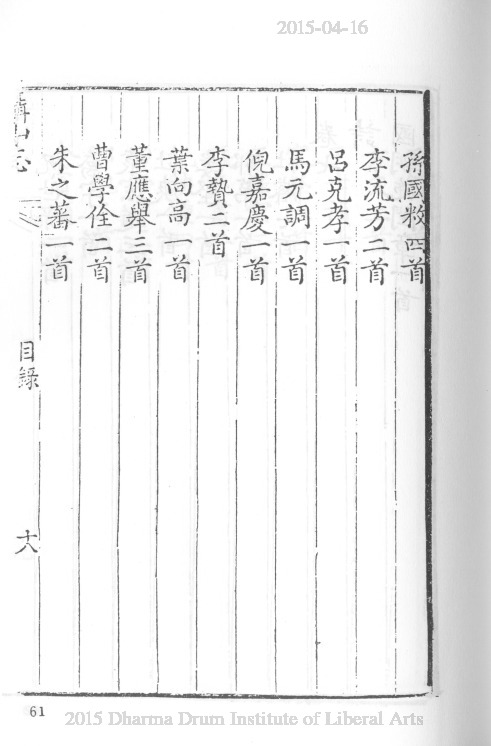 2015-04-16
孫國敉四首
李流芳二首
呂克孝一首
馬元調一首
倪嘉慶一首
李贄二首
葉向高一首
董應舉三首
曹學佺二首
朱之蕃一首
山志
目錄
十八
61
2015 Dharma Drum Institute of Liberal Arts